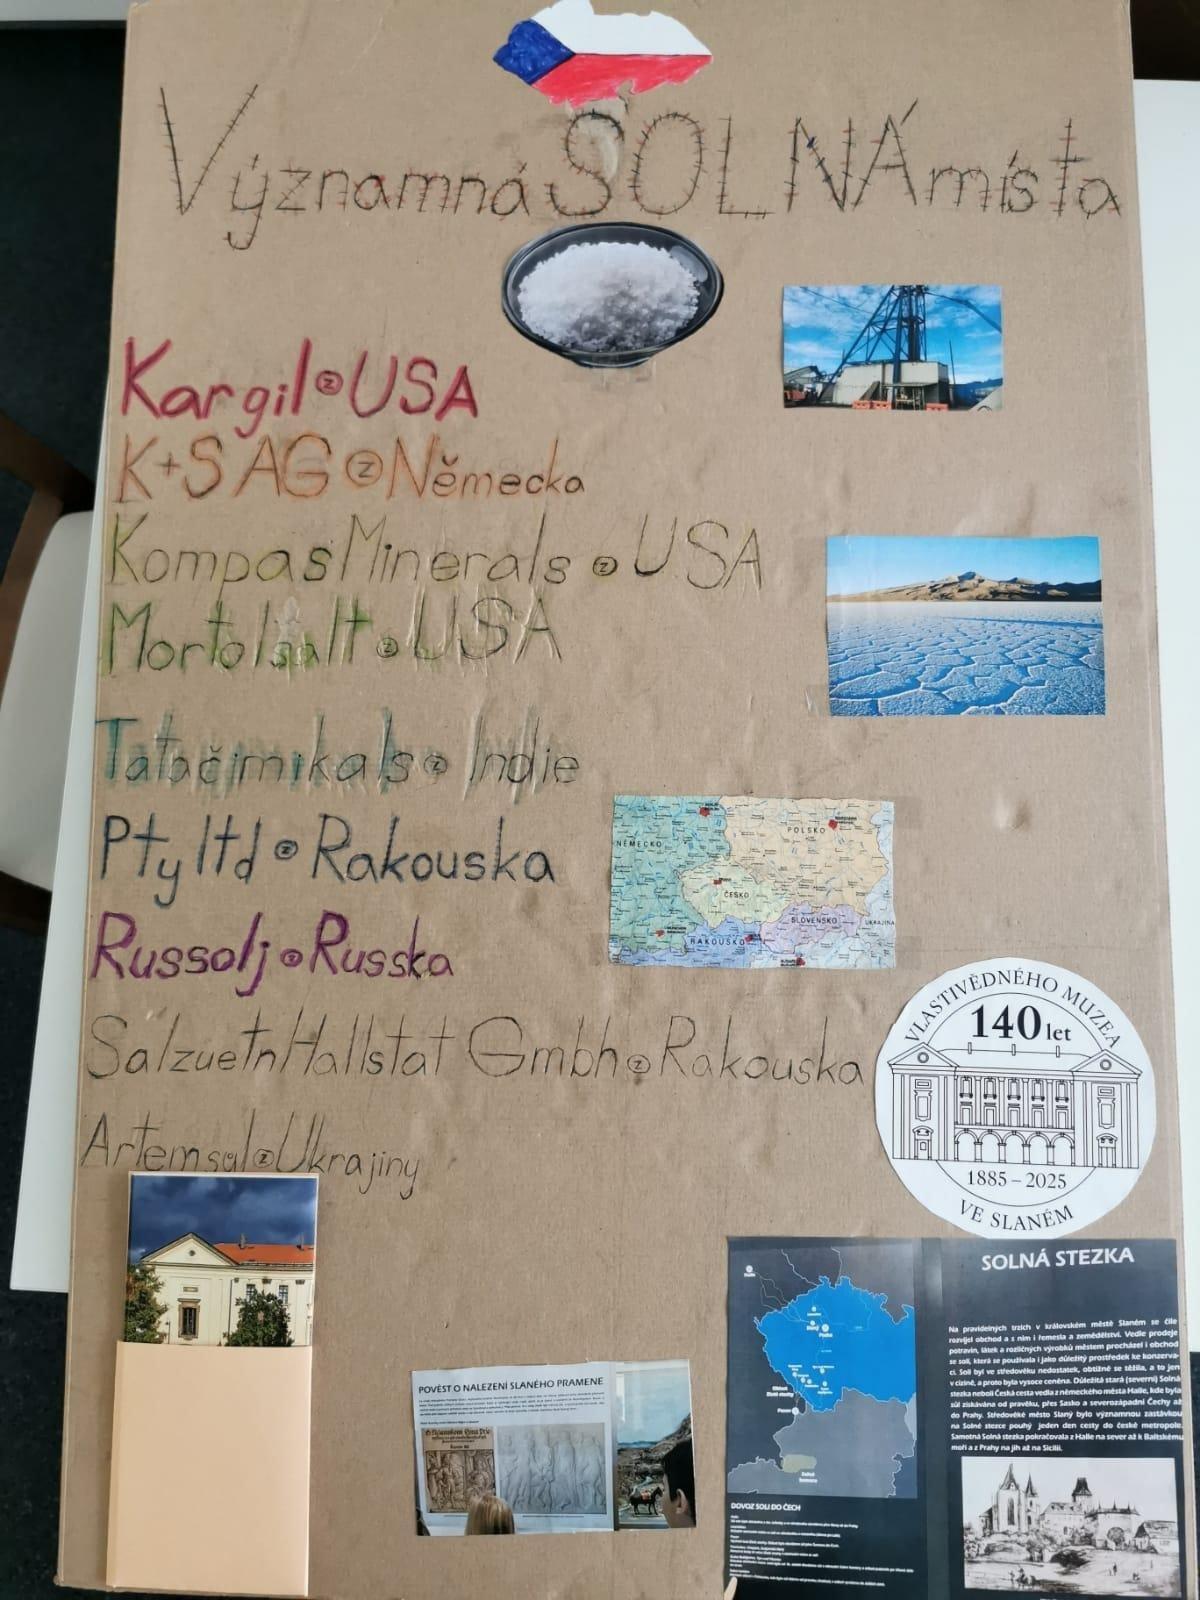 Významná SOLNÁ místa
Kargil z USA
K+S AG z Německa
Kompas Minerals z USA
Mortolsalt z USA
Tatačimikals z Indie
Pty ltd z Rakouska
NĚMECKO
POLSKO
ČESKO
SLOVENSKO
UKRAJINA
RAKOUSKO
Russolj z Ruska
Salzuetn Hallstat Gmbh z Rakouska
Artemsyl z Ukrajiny
VLASTIVĚDNÉHO MUZEA
140 let
1885 – 2025
VE SLANÉM
SOLNÁ STEZKA
Na pravidelných trzích v královském městě Slaném se čile
rozvíjel obchod a s ním i řemesla a zemědělství. Vedle prodeje
potravin, látek a rozličných výrobků městem procházel i obchod
se solí, která se používala i jako důležitý prostředek ke konzerva-
ci. Soli byl ve středověku nedostatek, obtížně se těžila, a to jen
v cizině, a proto byla vysoce ceněna. Důležitá stará (severní) Solná
stezka neboli Česká cesta vedla z německého města Halle, kde byla
sůl získávána od pravěku, přes Sasko a severozápadní Čechy až
do Prahy. Středověké město Slaný bylo významnou zastávkou
na Solné stezce pouhý jeden den cesty do české metropole.
Samotná Solná stezka pokračovala z Halle na sever až k Baltskému
moři a z Prahy na jih až na Sicílii.
DOVOZ SOLI DO ČECH
POVĚST O NALEZENÍ SLANÉHO PRAMENE